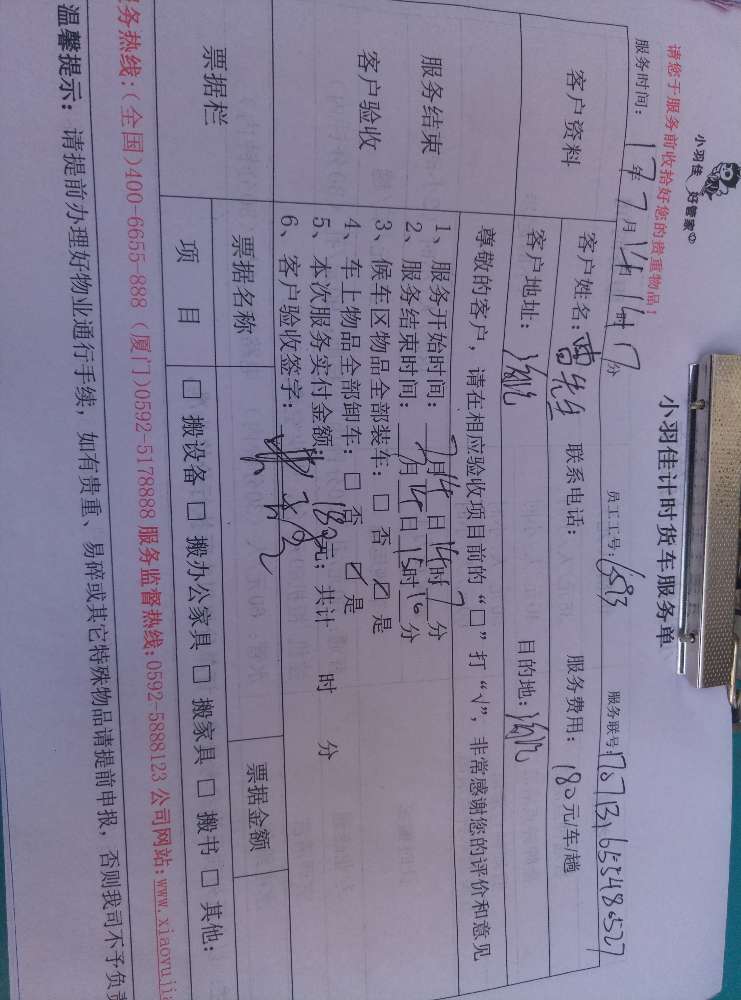 小羽佳 好管家
小羽佳计时货车服务单
请您于服务前收拾好您的贵重物品！
服务时间：17年7月14日14时7分 员工工号：6593 服务联号：
客户资料
客户姓名：曹先生 联系电话： 服务费用：180元/车/趟
客户地址： 目的地：
服务结束
客户验收
尊敬的客户，请在相应验收项目前的“□”打“√”，非常感谢您的评价和意见
1、服务开始时间：7月14日14时7分
2、服务结束时间：7月14日15时10分
3、候车区物品全部装车：□ 否 ☑ 是
4、车上物品全部卸车：□ 否 ☑ 是
5、本次服务实付金额：180元；共计 时 分
6、客户验收签字：
票据栏
票据名称 票据金额
项 目 □ 搬设备 □ 搬办公家具 □ 搬家具 □ 搬书 □ 其他：
务热线：(全国)400-6655-888 (厦门)0592-5178888 服务监督热线：0592-5888123 公司网站：www.xiaoyujia
温馨提示：请提前办理好物业通行手续，如有贵重、易碎或其它特殊物品请提前申报，否则我司不予负责